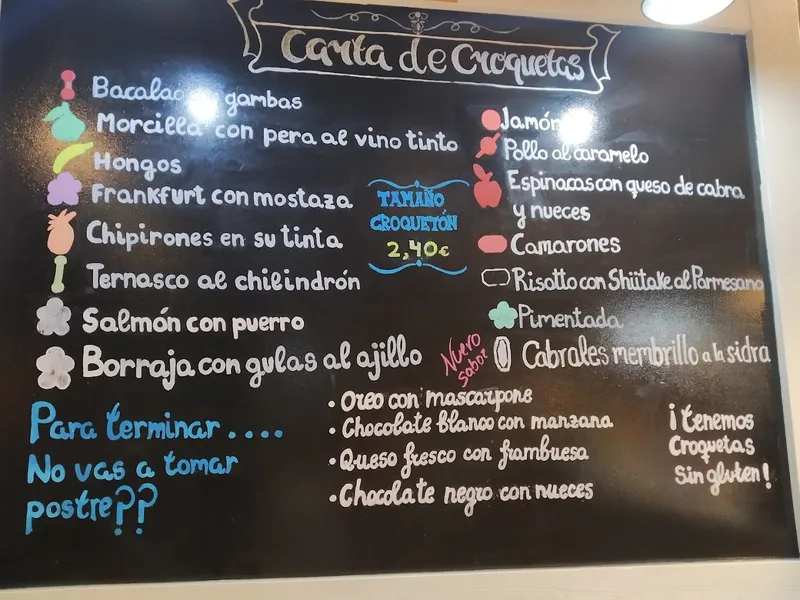 Carta de Croquetas
Bacalao gambas
Morcilla con pera al vino tinto
Hongos
Frankfurt con mostaza
Chipirones en su tinta
Ternasco al chilindrón
Salmón con puerro
Borraja con gulas al ajillo
TAMAÑO
CROQUETÓN
2,40€
Jamón
Pollo al caramelo
Espinacas con queso de cabra
y nueces
Camarones
Risotto con Shiitake al Parmesano
Pimentada
Nuevo
sabor
Cabrales membrillo a la sidra
Para terminar....
No vas a tomar
postre??
• Oreo con mascarpone
• Chocolate blanco con manzana
• Queso fresco con frambuesa
• Chocolate negro con nueces
¡tenemos
Croquetas
Sin gluten!